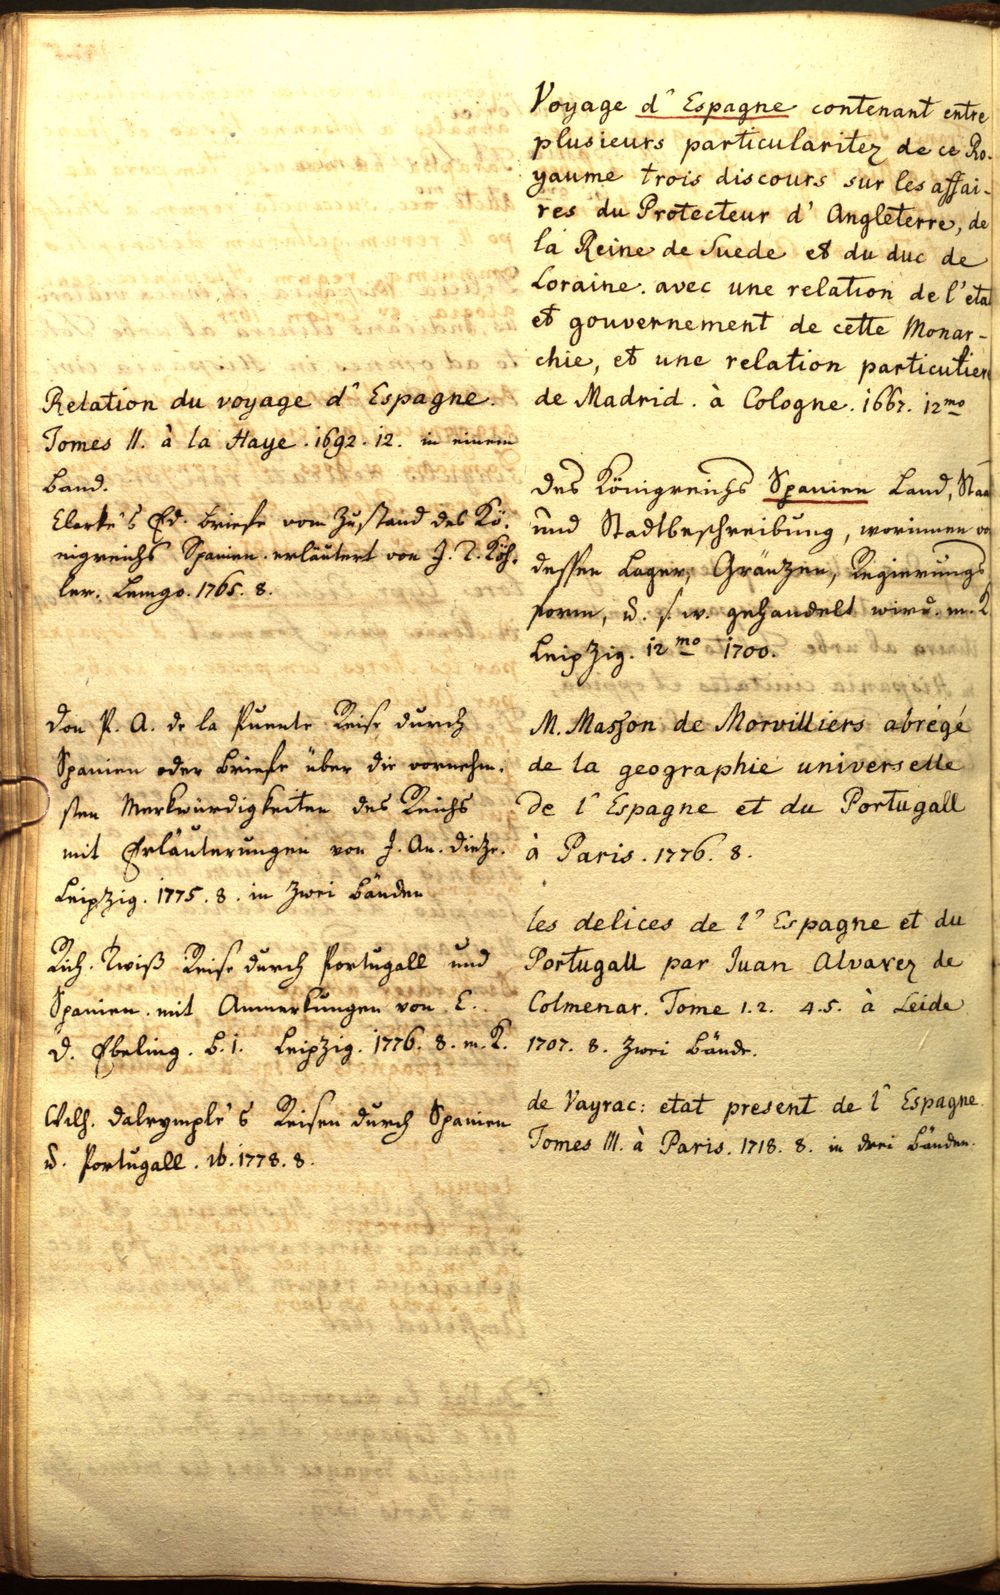 Relation du voyage d' Espagne.
Tomes II. à la Haye. 1692. 12. in einem
Band.
Clarke's Ed. Briefe vom Zustand des Kö-
nigreichs Spanien. erläutert von J. T. Köh-
ler. Lemgo. 1765. 8.
Don P. A. de la Puente Reise durch
Spanien oder Briefe über die vornehm-
sten Merkwürdigkeiten des Reichs
mit Erläuterungen von J. An. Dieze.
Leipzig. 1775. 8. in zwei Bänden
Rich. Twiß Reise durch Portugall und
Spanien. mit Anmerkungen von C.
D. Ebeling. B. 1. Leipzig. 1776. 8. m. K.
Wilh. Dalrymple's Reisen durch Spanien
u. Portugall. ib. 1778. 8.
Voyage d' Espagne contenant entre
plusieurs particularitez de ce Ro-
yaume trois discours sur les affai-
res du Protecteur d' Angleterre, de
la Reine de Suede et du duc de
Loraine. avec une relation de l' eta
et gouvernement de cette Monar-
chie, et une relation particulier
de Madrid. à Cologne. 1667. 12mo
Des Königreichs Spanien Land, Staa
und Stadtbeschreibung, worinnen vo
dessen Lager, Gränzen, Regierungs
form, u. s. w. gehandelt wird. m. K
Leipzig. 12mo 1700.
M. Masson de Morvilliers abrégé
de la geographie universelle
de l' Espagne et du Portugall
à Paris. 1776. 8.
les delices de l' Espagne et du
Portugall par Juan Alvarez de
Colmenar. Tome 1. 2. 4. 5. à Leide
1707. 8. Zwei Bände.
de Vayrac: etat present de l' Espagne
Tomes III. à Paris. 1718. 8. in drei Bänden.